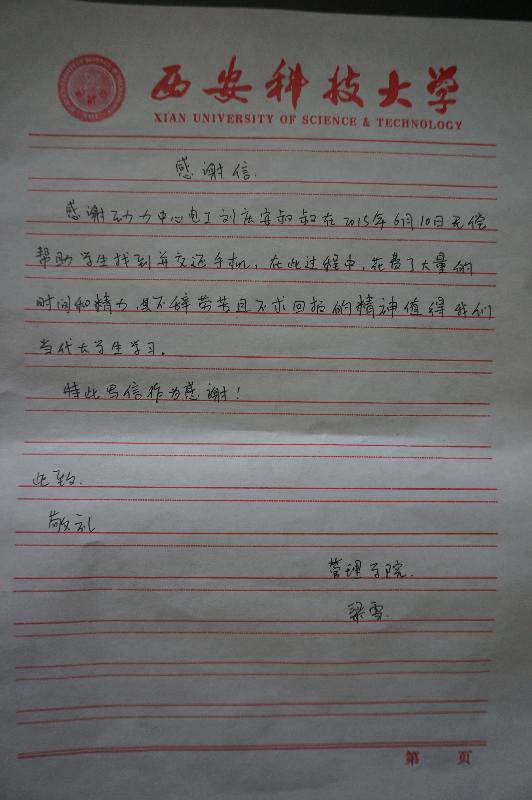 西安科技大学
XI'AN UNIVERSITY OF SCIENCE & TECHNOLOGY
感谢信.
感谢动力中心电工刘庆安叔叔在2015年6月10日无偿
帮助学生找到并交还手机，在此过程中，花费了大量的
时间和精力，其不辞劳苦且不求回报的精神值得我们
当代大学生学习。
特此写信作为感谢！
此致.
敬礼
管理学院.
梁雪.
第 页